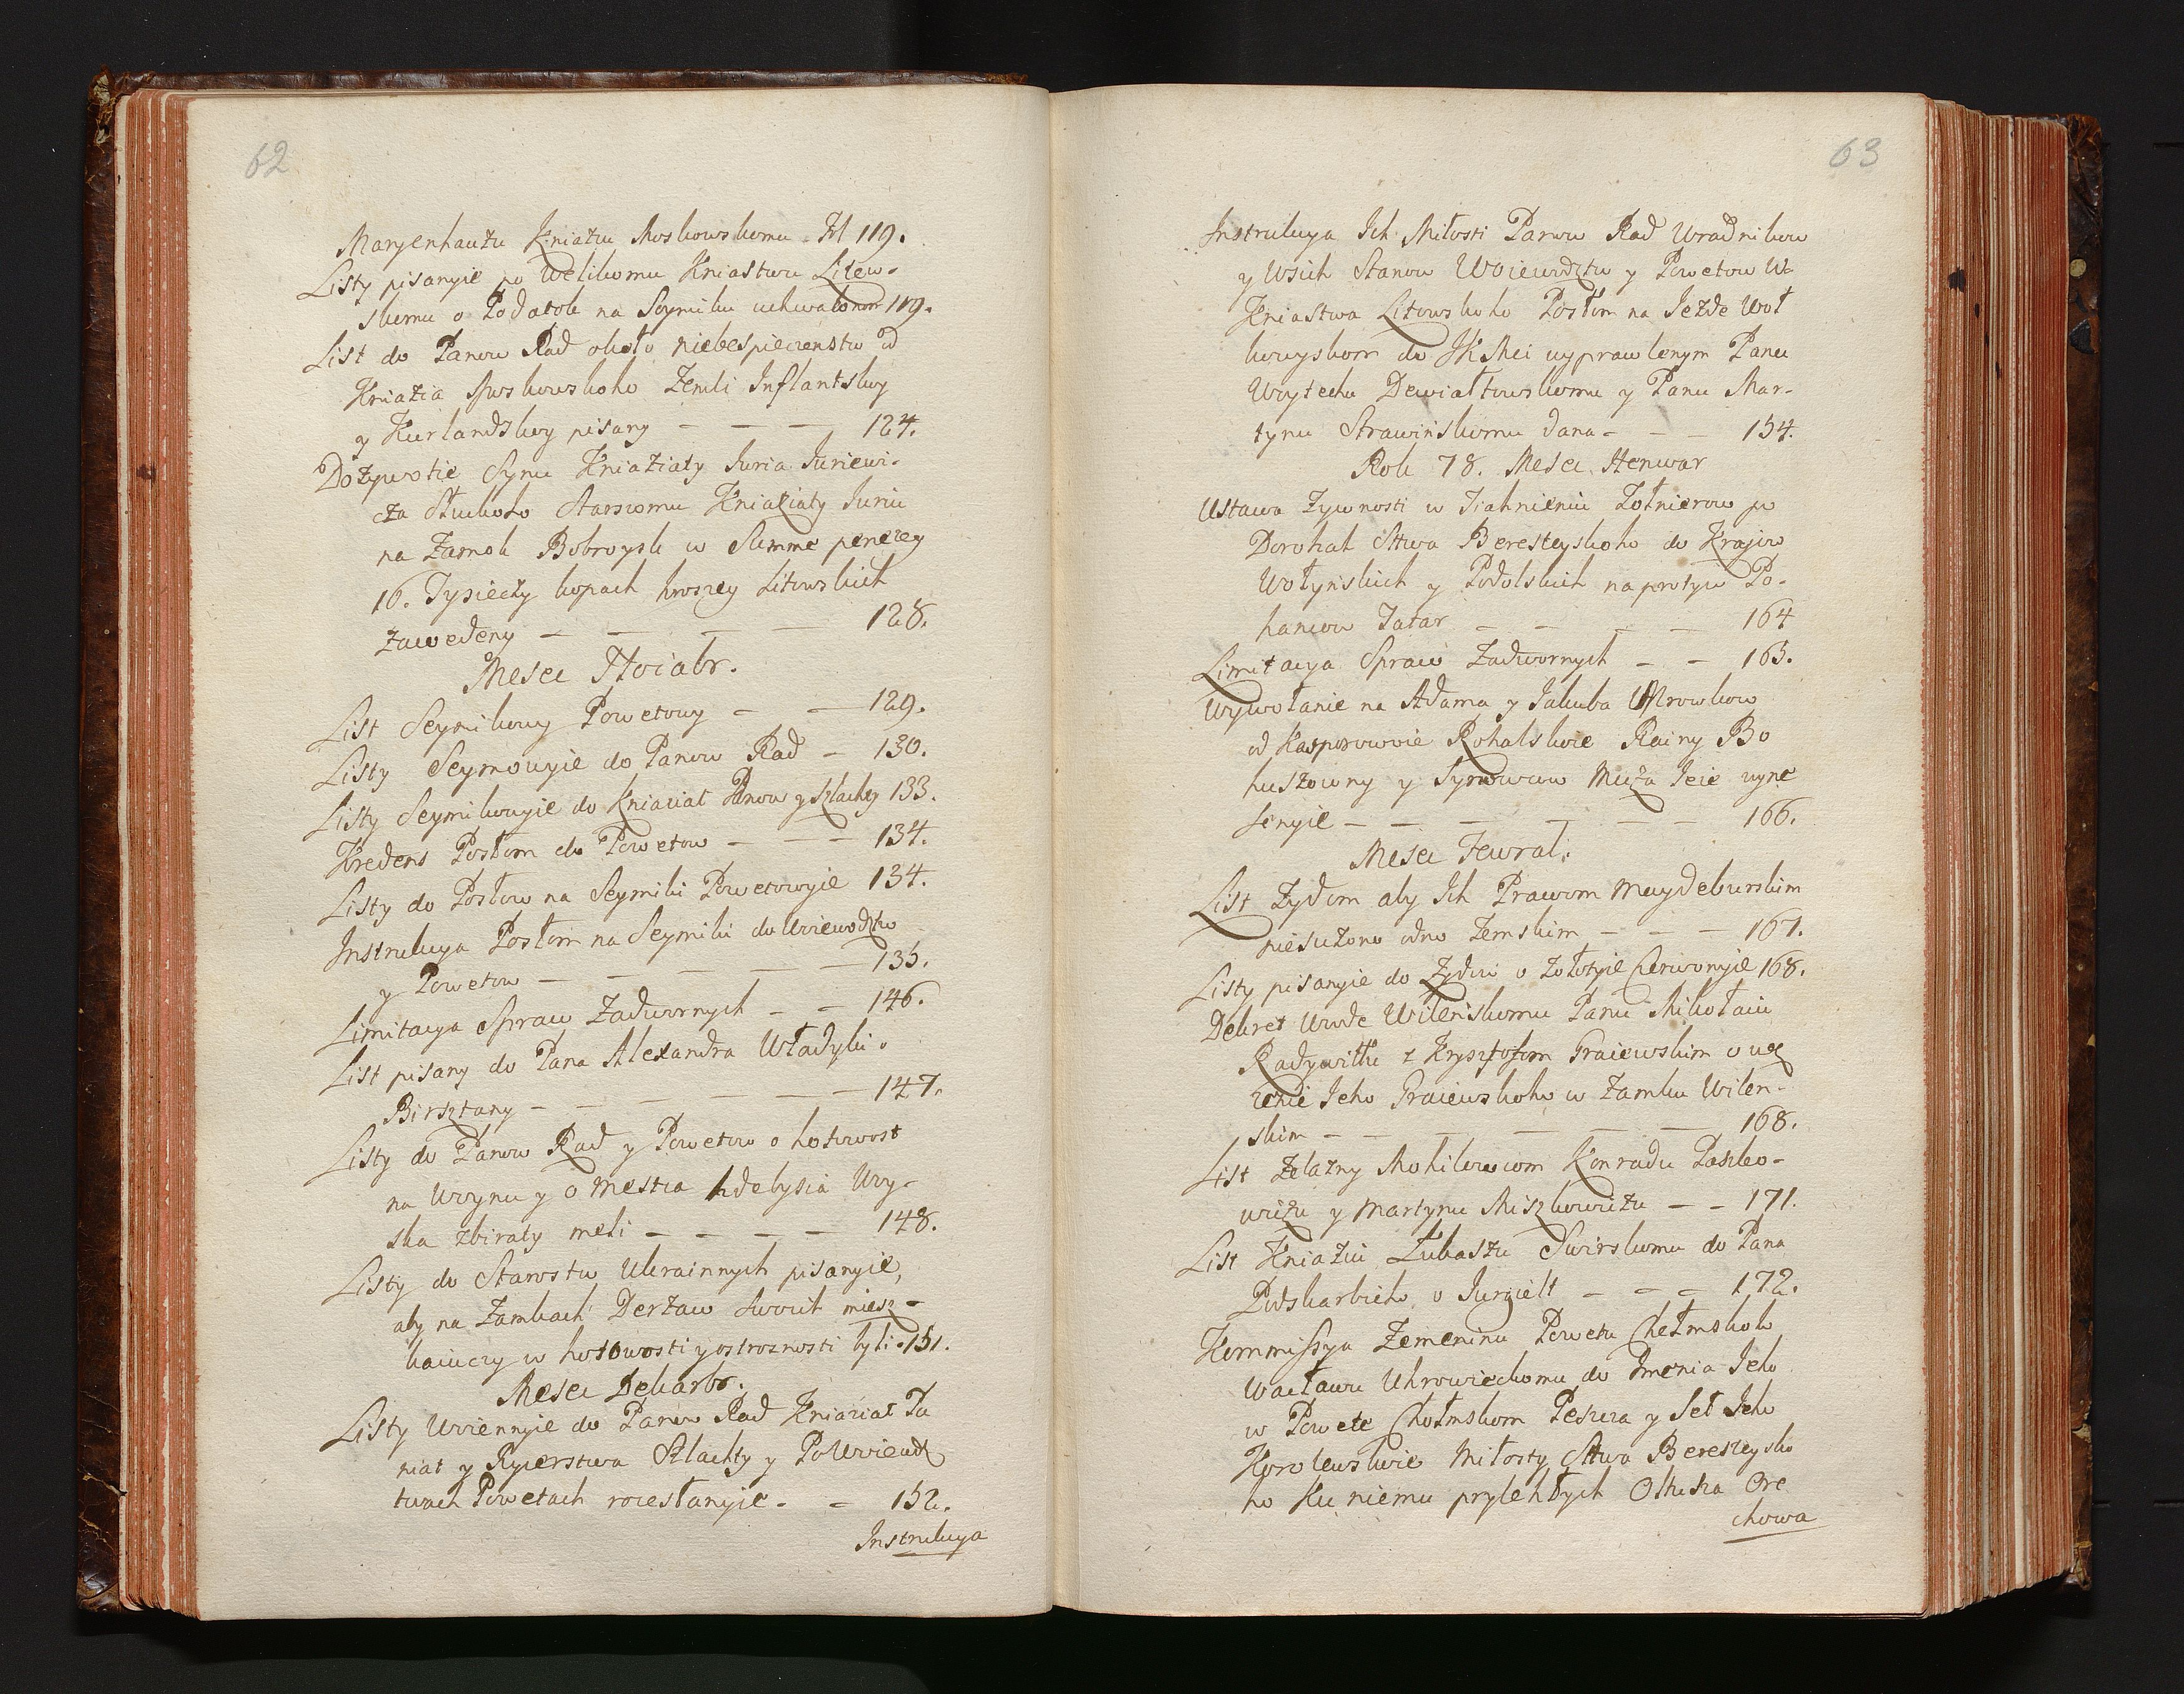 62
Maryenhauzu Kniaziu Moskowskomu Fol 119.
Listy pisanyie po Welikomu Kniastwu Litew-
skomu o Podatok na Seymiku uchwalonom 119.
List do Panow Rad około niebespieczenstw od
Kniazia Moskowskoho Zemli Inflantskoy
y Kurlandzkoy pisany — — — 124.
Dożywotie Synu Kniaziaty Juria Juriewi-
cza Słuckoho Starszomu Kniaziaty Juriu
na Zamok Bobroysk w Summe penezey
16. Tysieczy kopach hroszey Litowskich
zawedeny — — — — 128.
Mesca Nojabr.
List Seymikowy Powetowy — — 129.
Listy Seymowyie do Panow Rad — 130.
Listy Seymikowyie do Kniaziat Panow y Szlachty 133.
Kredens Posłom do Powetow — — — 134.
Listy do Posłow na Seymiki Powetowyie 134.
Instrukcya Posłom na Seymiki do Woiewodztw
y Powetow — — — — — 135.
Limitacya Spraw Zadwornych — — 146.
List pisany do Pana Alexandra Władyki.
Birsztany — — — — — — 147.
Listy do Panow Rad y Powetow o hotowost
na Woynu y o Mestca hdebysia Woy-
ska zbiraty meli — — — — 148.
Listy do Starostw Ukrainnych pisanyie,
aby na Zamkach Derżaw Swoich miesz-
kaiuczy w hotowosti y ostroznosti byli. 151.
Mesca Dekabr.
Listy Woiennyie do Panow Rad Kniaziat Pa
niat y Rycerstwa Szlachty y Po Woiewodz
twach Powetach rozesłanyie. — 152.
Instrukcya
63
Instrukcya Ich Miłosti Panow Rad Wradnikow
y Wsich Stanow Woiewodztw y Powetow W.
Kniastwa Litowskoho Posłom na Jezde Woł
kowyskom do JKMci wyprawlenym Panu
Woytechu Dewiałtowskomu y Panu Mar-
tynu Strawińskomu dana — — — 154.
Rok 78. Mesca Henwar
Ustawa Zywnosti w Tiahnieniu Żołnierow po
Dorohah Sttwa Beresteyskoho do Krajow
Wołyńskich y Podolskich naprotyw Po-
hancow Tatar — — — — 164
Limitacya Spraw Zadwornych — — 165.
Wywołanie na Adama y Jakuba Mrowkow
od Kasporowoie Rohalskoie Rainy Bo
huszowny y Synowcow Muża Jeie uyne
senyie — — — — — — 166.
Mesca Fewral.
List Zydom aby Ich Prawom Maydeburskim
niesużono odno Zemskim — — — 167.
Listy pisanyie do Zydow o Zołotyie Czerwonyie 168.
Dekret Woiewode Wileńskomu Panu Mikołaiu
Radywiłłu z Krysztofom Graiewskim o wez
zenie Jeho Graiewskoho w Zamku Wilen-
skim — — — — — — 168.
List Żelazny Mohilowcom Konradu Paszko-
wiczu y Martynu Miszkowiczu — — 171.
List Kniaziu Łukaszu Swirskomu do Pana
Podskarbieho o Jurgielt — — — 172.
Kommissya Zemeninu Powetu Chełmskoho
Wacławu Uhrowieckomu do Imenia Jeho
w Powete Chołmskom Peszcza y Seł Jeho
Korolewskoie Miłosty Sttwa Beresteysko
ho Ku niemu prylehłych Olchsza Ore
chowa